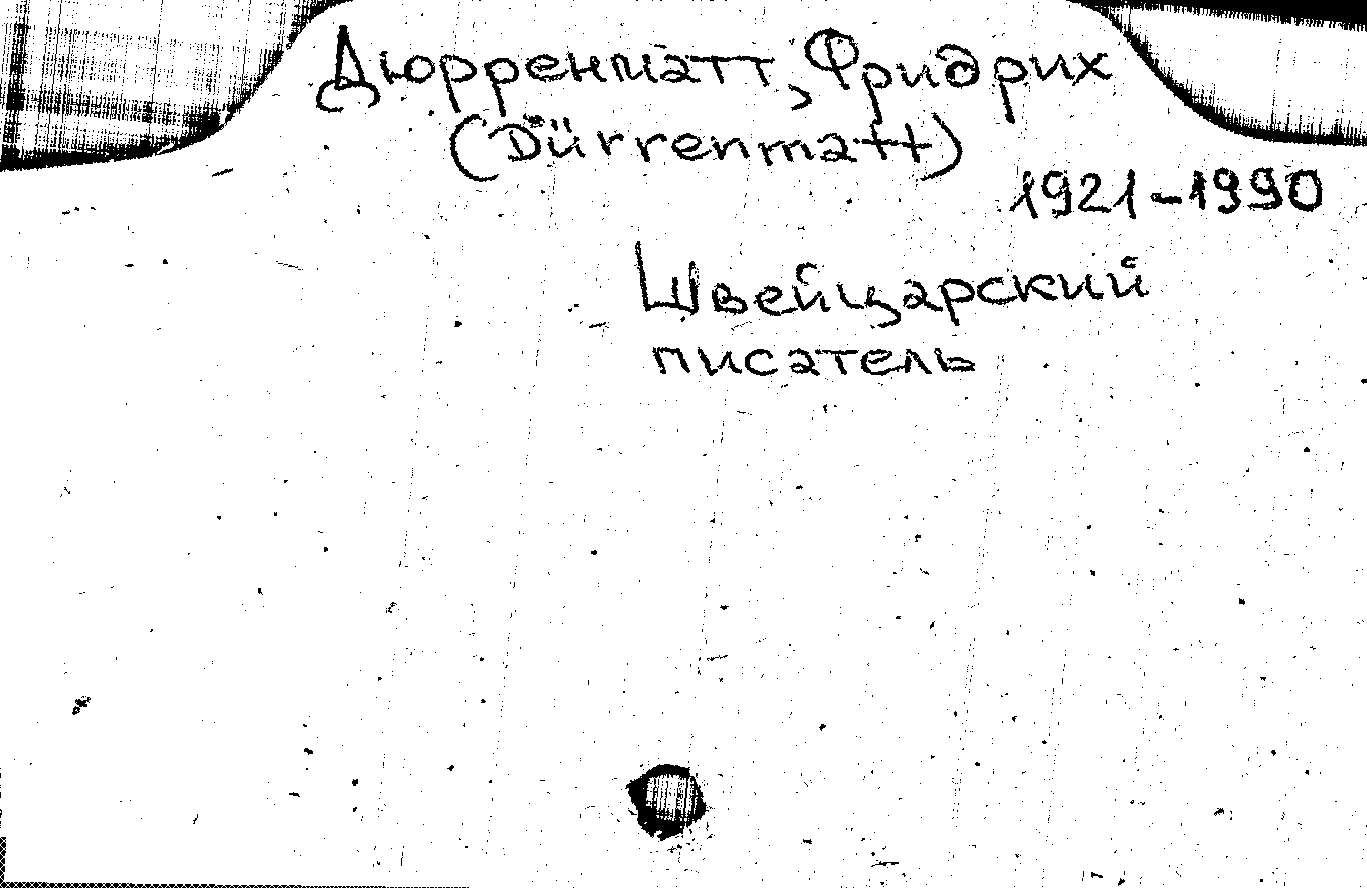 Дюрренматт, Фридрих
(Dürrenmatt)
1921-1990
Швейцарский
писатель